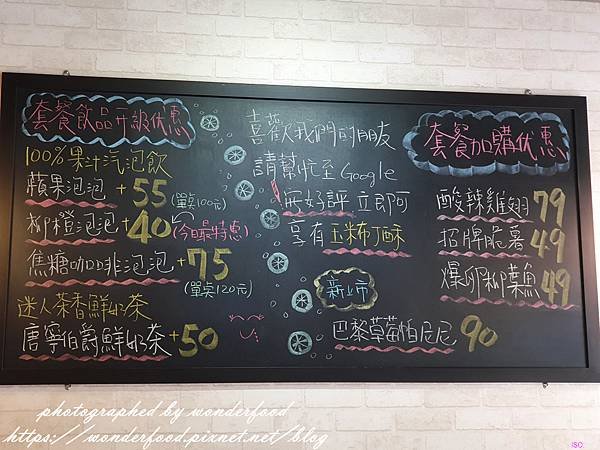 套餐飲品升級优惠
100%果汁汽泡飲
蘋果泡泡+55(單点100元)
柳橙泡泡+40
(今日最特惠)
焦糖咖啡泡泡+75
(單点120元)
迷人茶香鮮奶茶
唐寧伯爵鮮奶茶+50
喜歡我們的朋友
請幫忙至Google
按好評 立即可
享有玉米布丁酥
新上市
巴黎草莓帕尼尼 90
套餐加購优惠
酸辣雞翅79
招牌脆薯49
爆卵柳葉魚49
photographed by wonderfood
https://wonderfood.pixnet.net/blog
ISO.